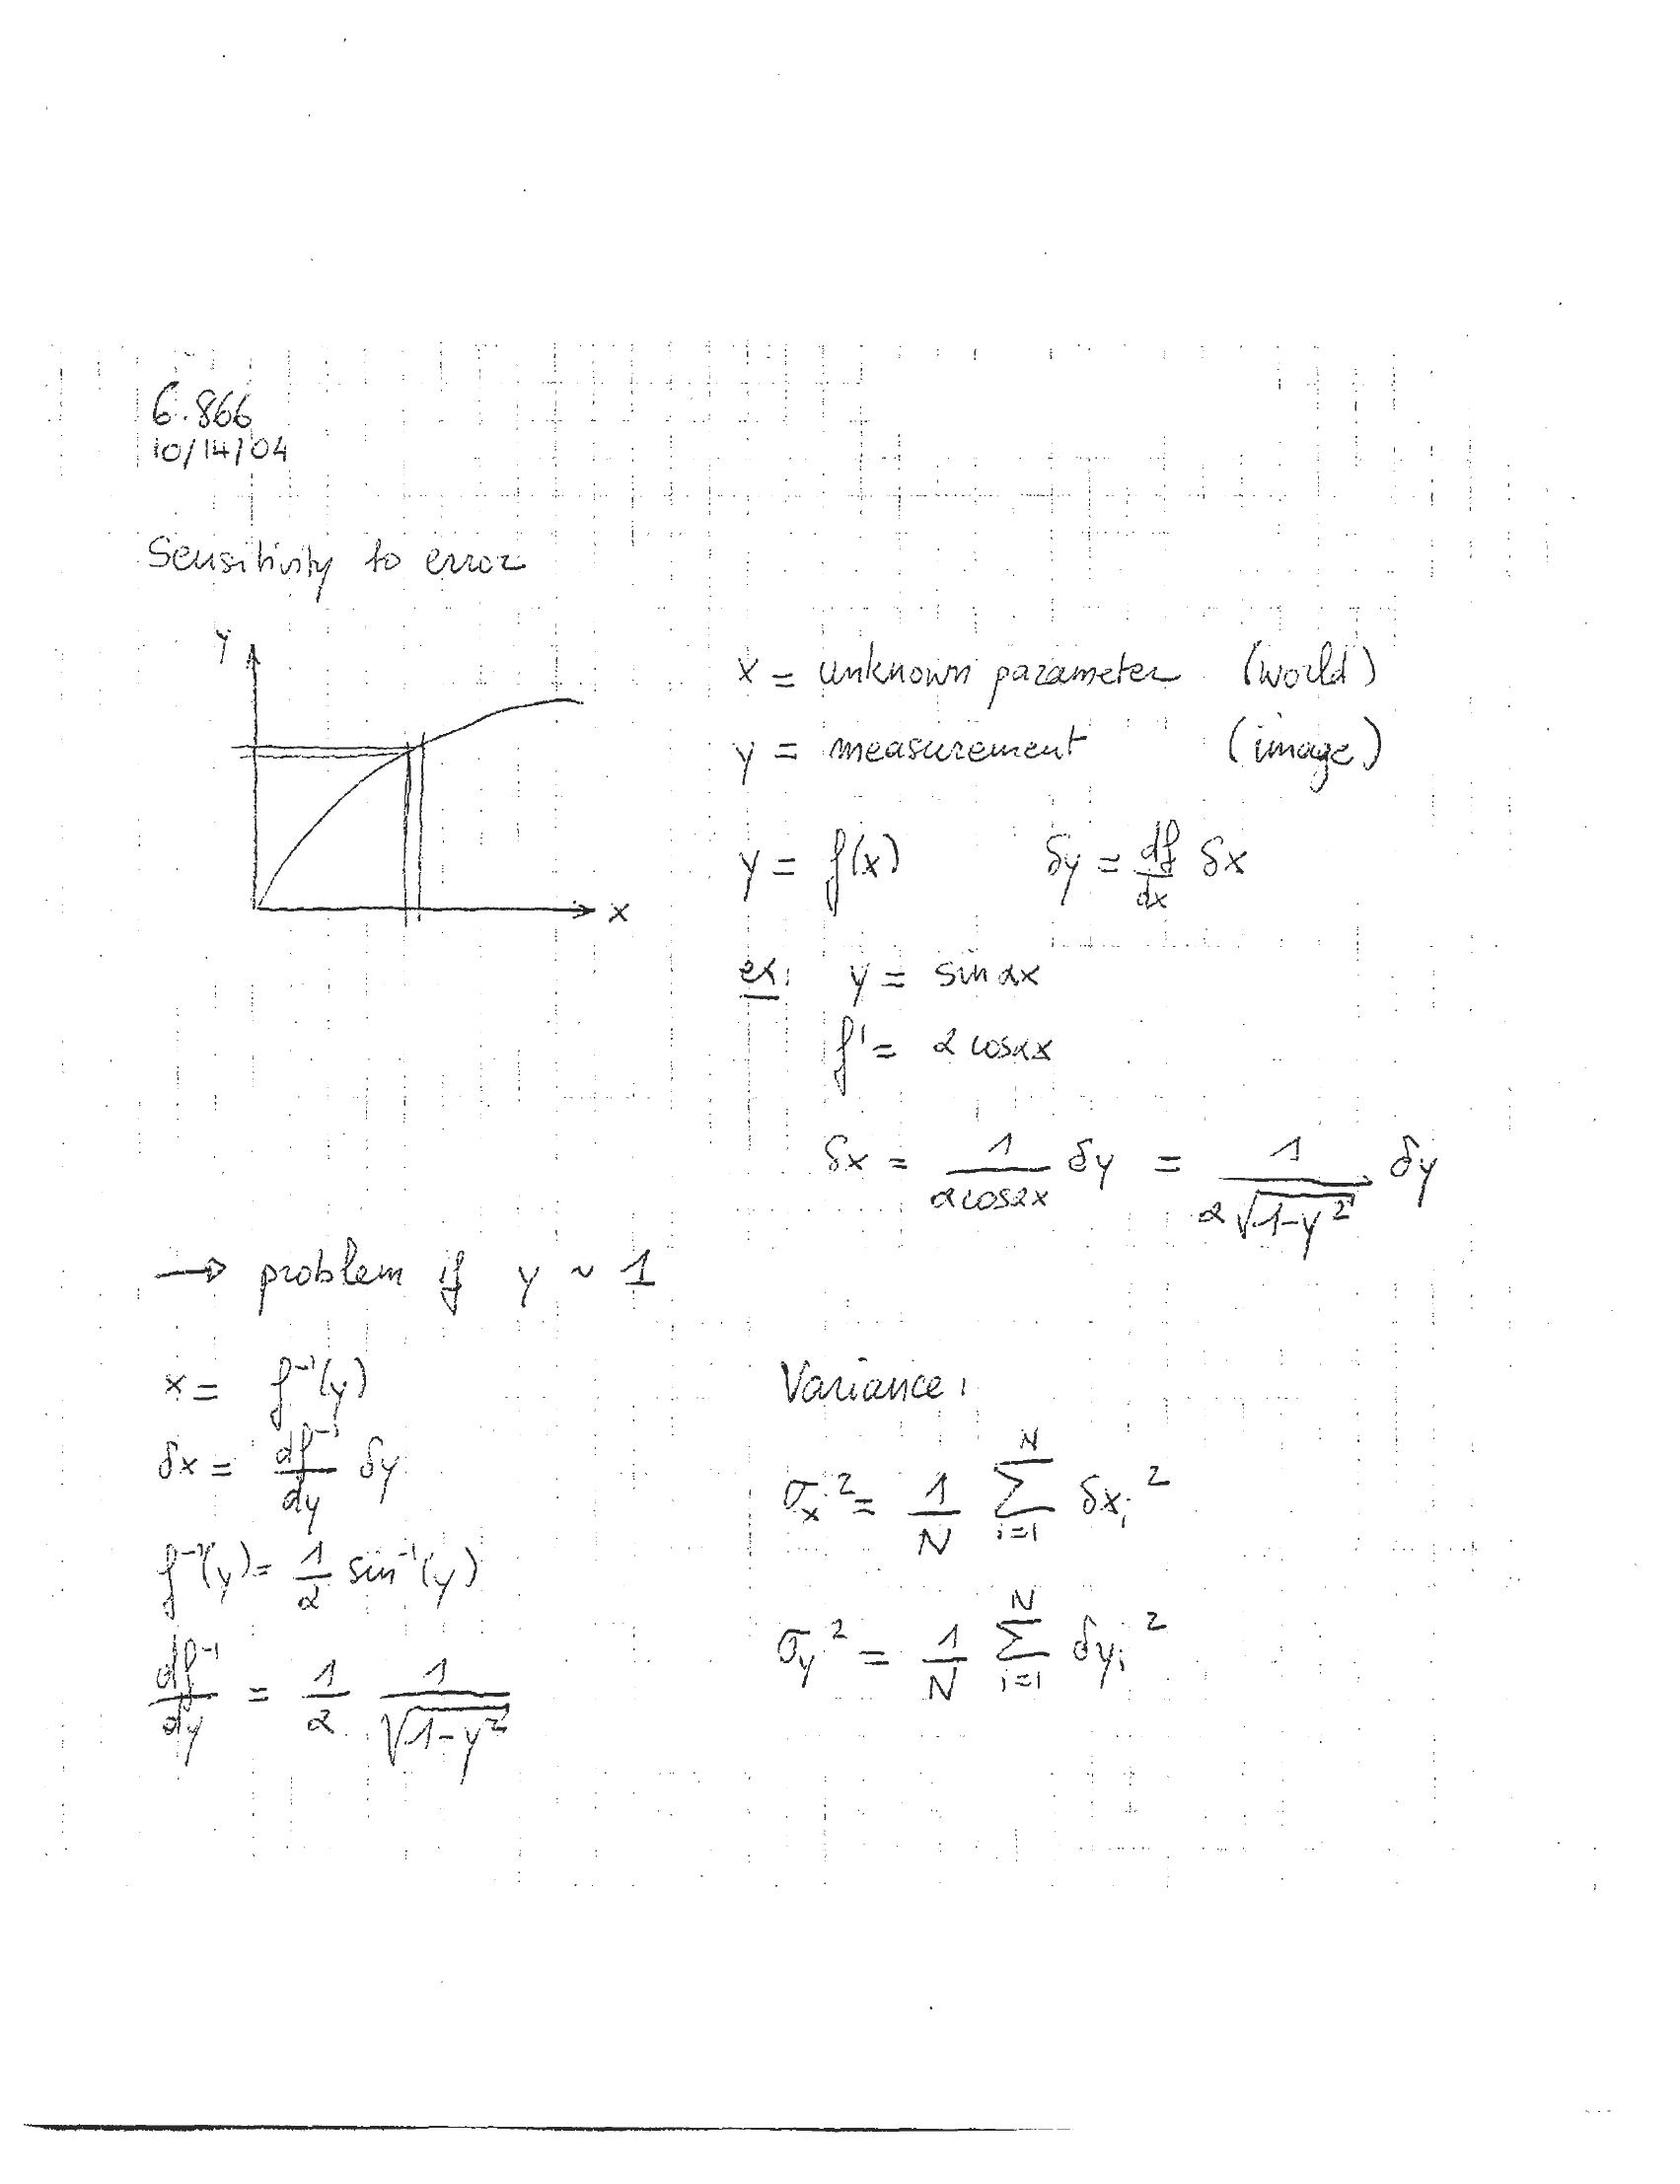 6.866
10/14/04
Sensitivity to error
y
x
x = unknown parameter (world)
y = measurement (image)
y = f(x) δy = df/dx δx
ex: y = sin 2x
f' = 2 cos 2x
δx = 1/(2 cos 2x) δy = 1/(2√(1-y²)) δy
→ problem if y ~ 1
x = f⁻¹(y)
δx = df⁻¹/dy δy
f⁻¹(y) = 1/2 sin⁻¹(y)
df⁻¹/dy = 1/2 1/√(1-y²)
Variance:
σx² = 1/N ∑_{i=1}^{N} δxi²
σy² = 1/N ∑_{i=1}^{N} δyi²